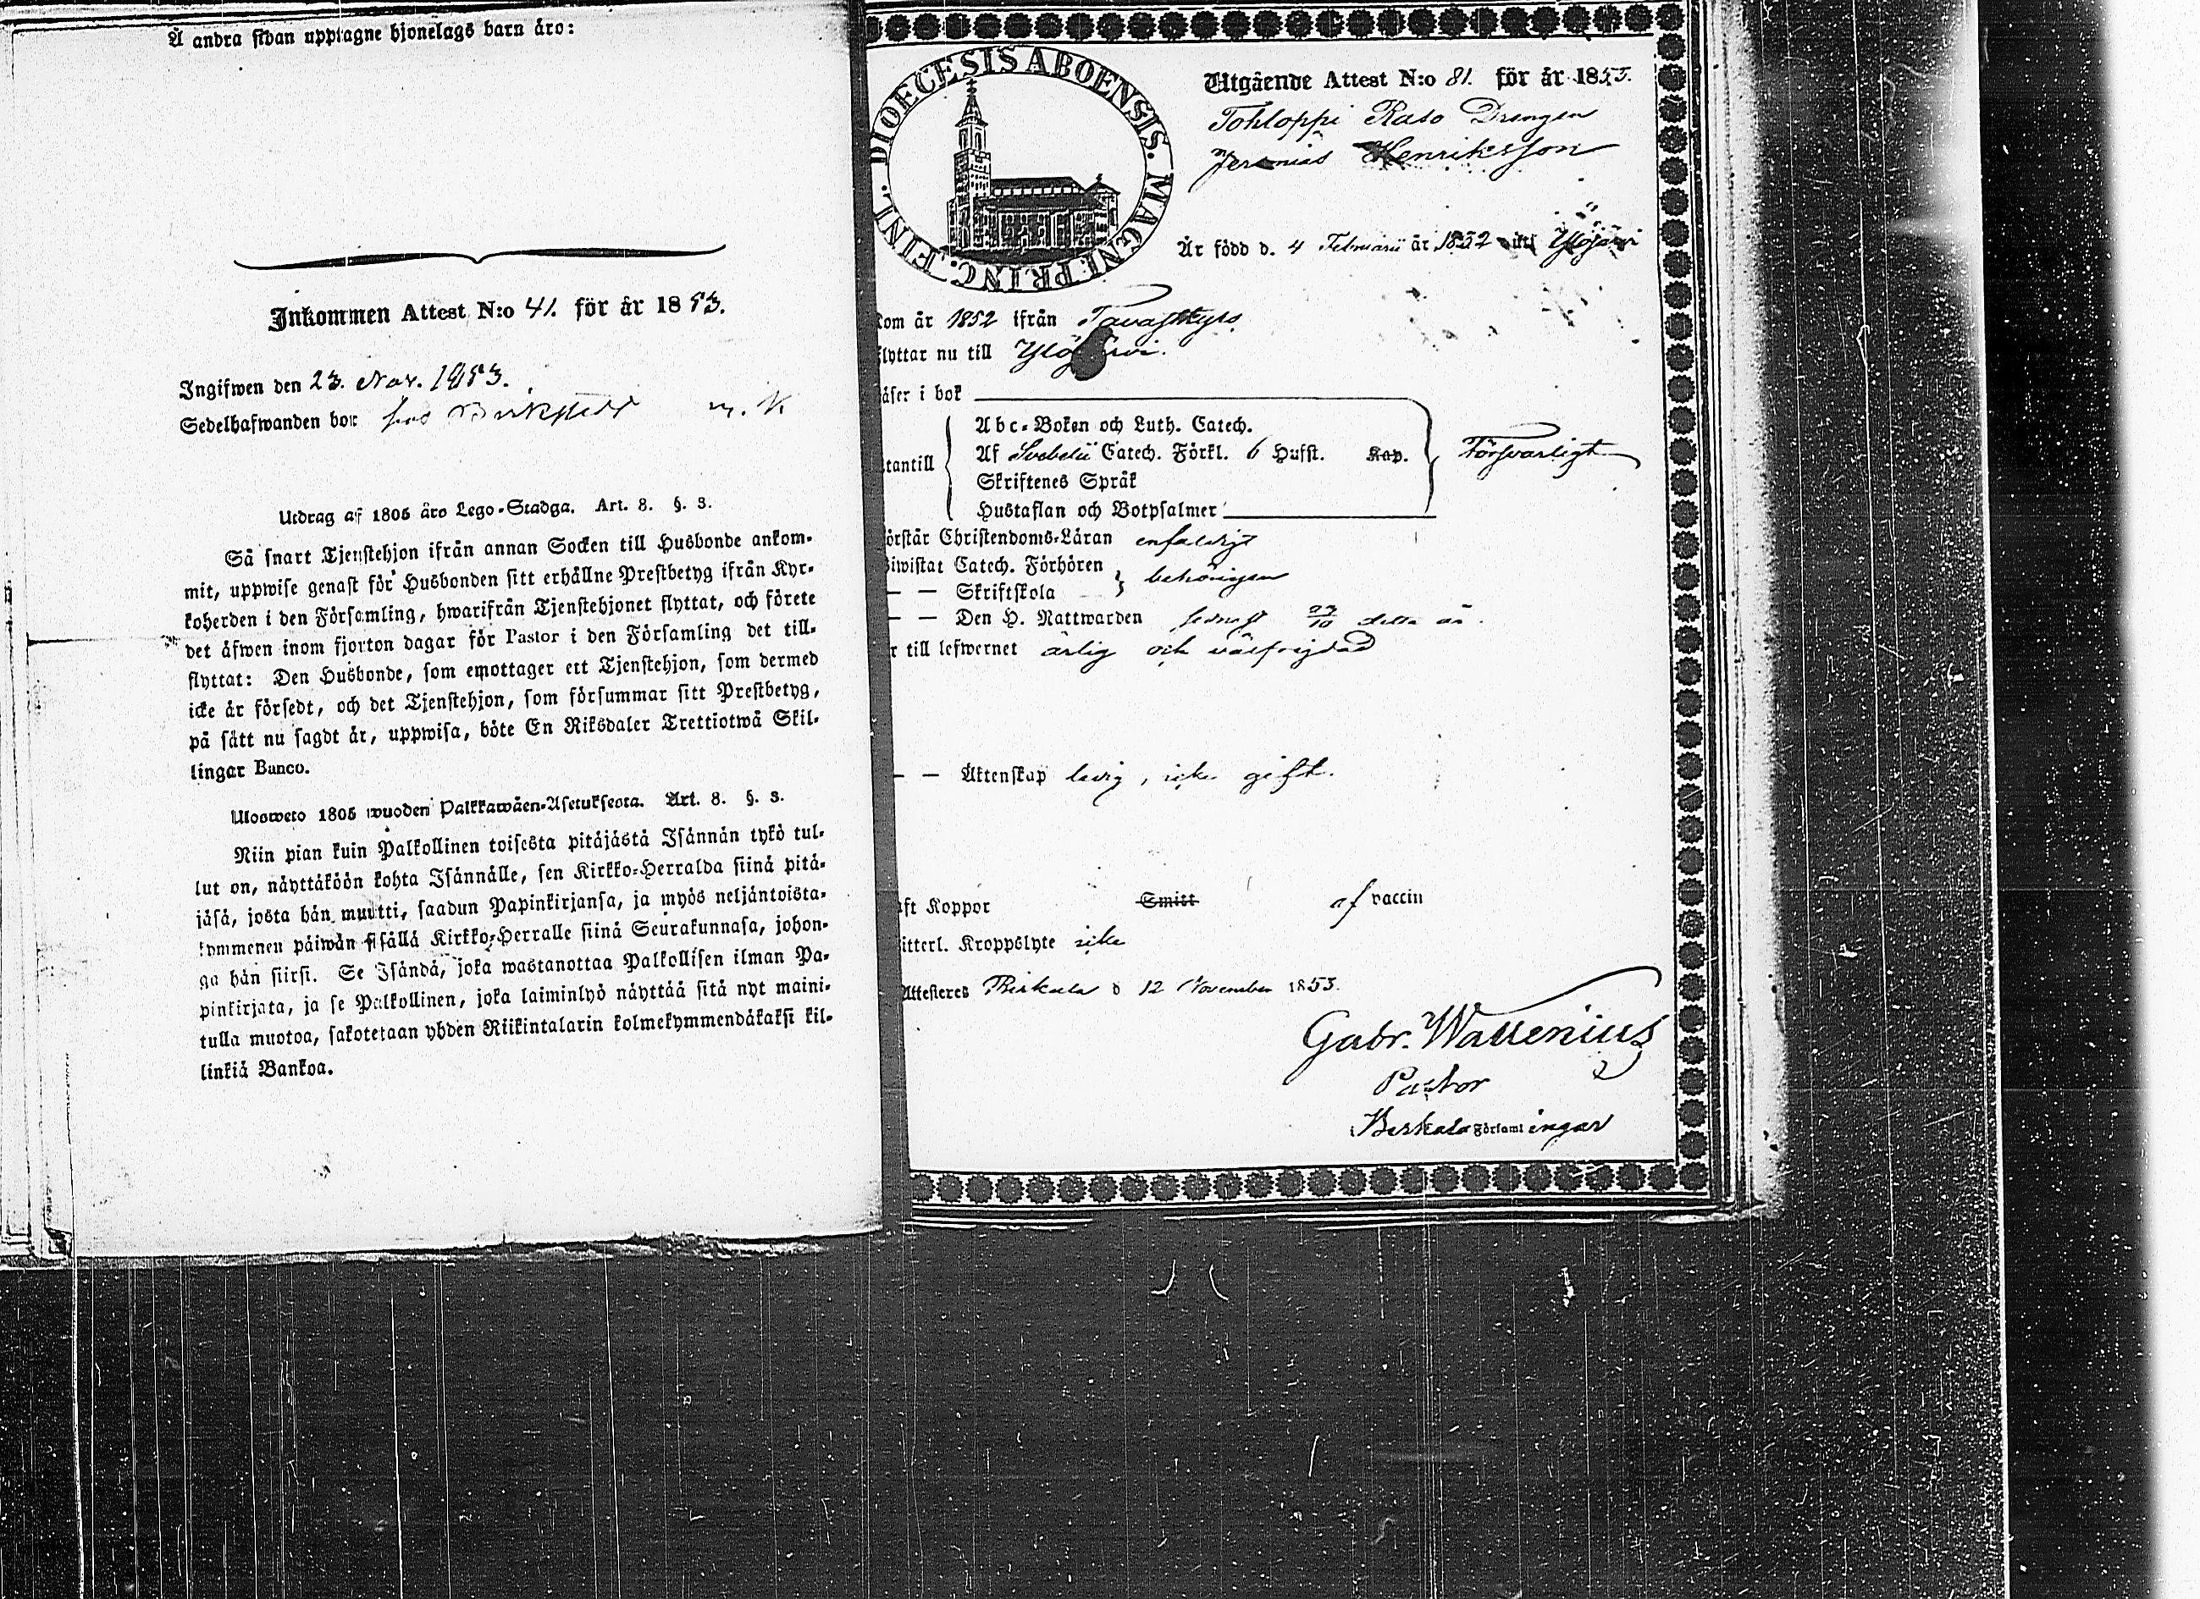 Å andra sidan upptagne hjonelags barn äro:
Inkommen Attest N:o 41. för år 1853.
Ingifwen den 23. Nov. 1853.
Sedelhafwanden bor hos
Utdrag af 1805 års Lego-Stadga. Art. 8. §. 3.
Så snart Tjenstehjon ifrån annan Socken till Husbonde ankom-
mit, uppwise genast för Husbonden sitt erhållne Prestbetyg ifrån Kyr-
koherden i den Församling, hwarifrån Tjenstehjonet flyttat, och förete
det äfwen inom fjorton dagar för Pastor i den Församling det till-
flyttat: Den Husbonde, som emottager ett Tjenstehjon, som dermed
icke är försedt, och det Tjenstehjon, som försummar sitt Prestbetyg,
på sätt nu sagdt är, uppwisa, böte En Riksdaler Trettiotwå Skil-
lingar Banco.
Ulosweto 1805 wuoden Palkkawäen-Asetuksesta. Art. 8. §. 3.
Niin pian kuin Palkollinen toisesta pitäjästä Isännän tykö tul-
lut on, näyttäköön kohta Isännälle, sen Kirkko-Herralda siinä pitä-
jäsä, josta hän muutti, saadun Papinkirjansa, ja myös neljäntoista-
kymmenen päiwän sisällä Kirkko-Herralle siinä Seurakunnasa, johon-
ga hän siirsi. Se Isändä, joka wastanottaa Palkollisen ilman Pa-
pinkirjata, ja se Palkollinen, joka laiminlyö näyttää sitä nyt maini-
tulla muotoa, sakotetaan yhden Riikintalarin kolmekymmendäkaksi kil-
linkiä Bankoa.
DIOECESIS ABOENSIS. MAGNI PRINC. FINL.
Utgående Attest N:o 81. för år 1853.
Tohloppi Raso Drengen
Jeremias Henriksson
Är född d. 4 Februarii år 1832 uti Ylöjärvi
kom år 1852 ifrån Tavastkyro
flyttar nu till Ylöjärvi.
läser i bok
Abc-Boken och Luth. Catech.
utantill Af Svebelii Catech. Förkl. 6 Hufst. Kap. Försvarligt
Skriftenes Språk
Hustaflan och Botpsalmer
förstår Christendoms-Läran enfaldigt
biwistat Catech. Förhören behörigen
— — Skriftskola
— — Den H. Nattwarden sednast 23/10 detta år.
är till lefwernet ärlig och välfrejdad
— — Äktenskap ledig, icke gift.
haft Koppor Smitt af vaccin
witterl. Kroppslyte icke
Attesteres Birkala d 12 November 1853.
Gabr. Wallenius
Pastor
i Birkala Församlingar